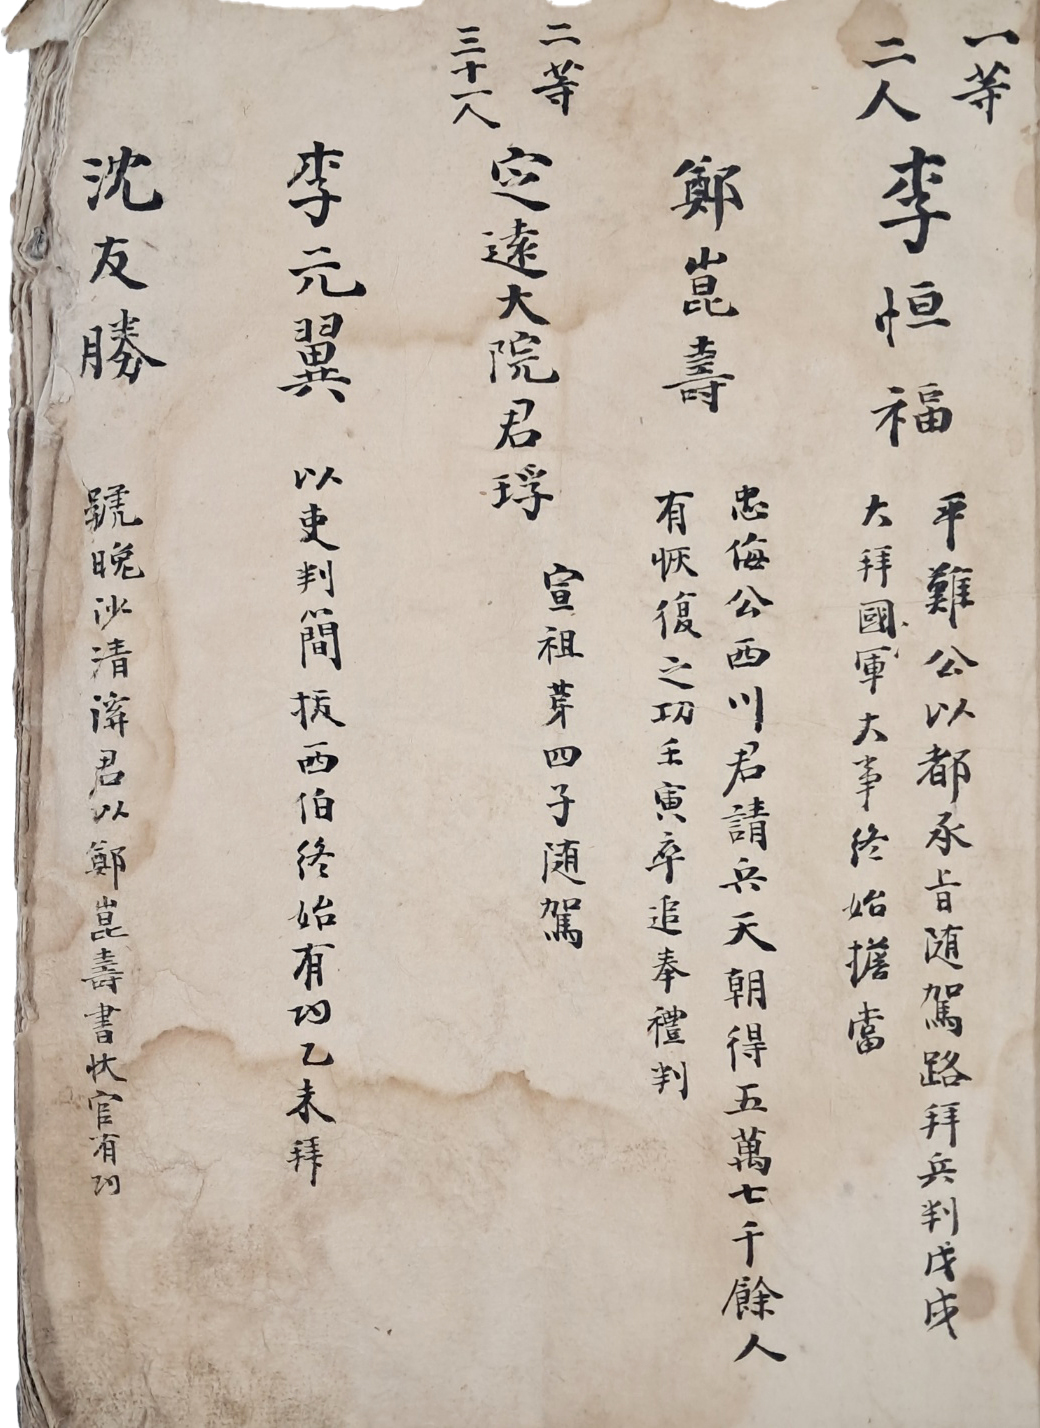 一等
二人
李恒福
平難公以都承旨随駕路拜兵判戊戌
大拜國軍大事終始擔當
鄭崑壽
忠侮公西川君請兵天朝得五萬七千餘人
有恢復之功壬寅卒追奉禮判
二等
三十一人
定遠大院君琈
宣祖芽四子随駕
李元翼
以吏判簡拔西伯終始有功乙未拜
沈友勝
號晚沙清溝君以鄭崑壽書状官有功